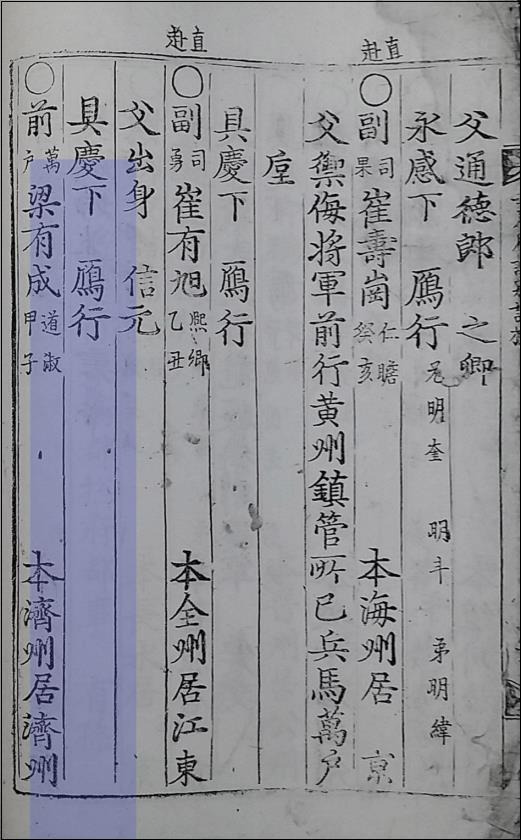 父通德郎 之卿
永感下 鴈行 兄明奎 明斗 弟明緯
直赴
○副司果崔壽崗仁瞻癸亥 本海州居京
父禦侮將軍前行黃州鎮管所已兵馬萬戶
垕
具慶下 鴈行
直赴
○副司勇崔有旭熙卿乙丑 本全州居江東
父出身 信元
具慶下 鴈行
○前萬戶梁有成道淑甲子 本濟州居濟州